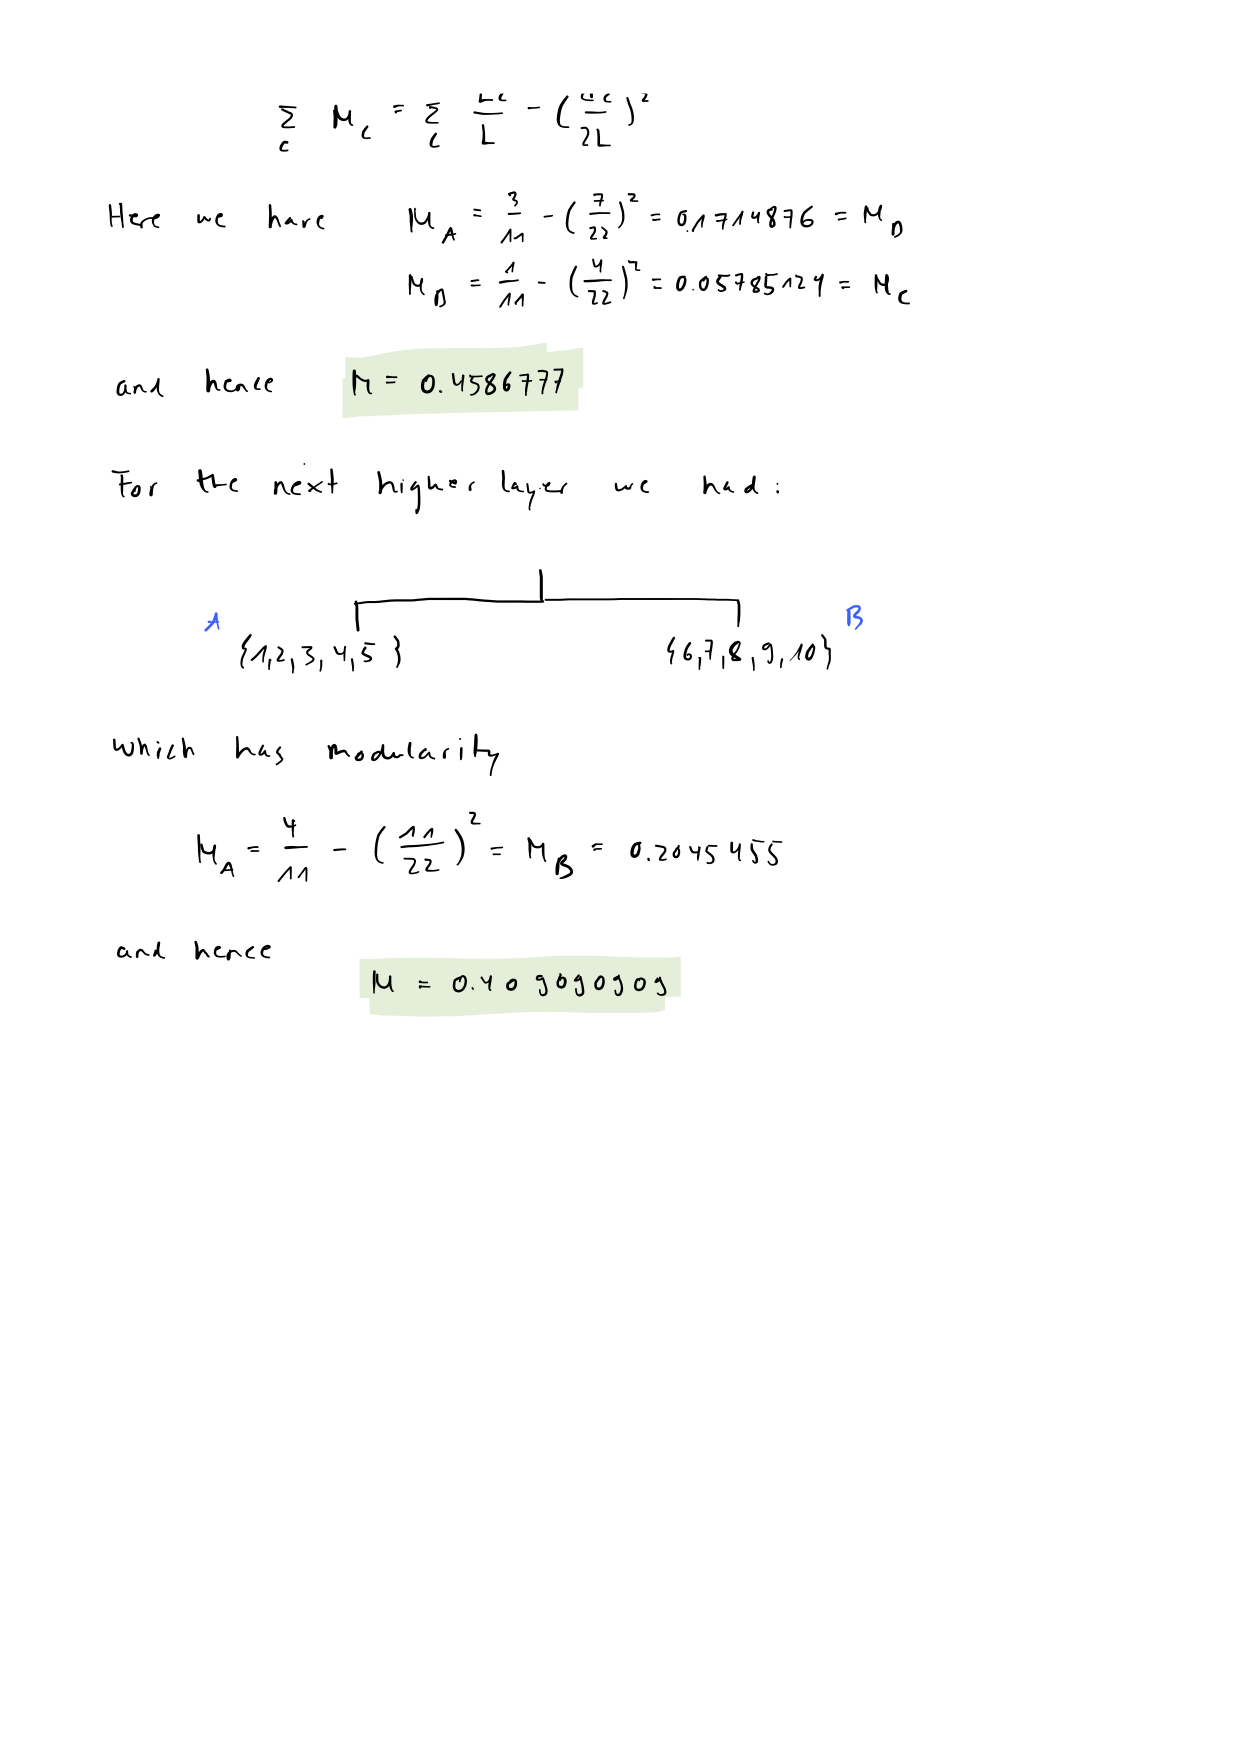 Σ_c M_c = Σ_c L_c/L - (d_c/2L)^2
Here we have M_A = 3/11 - (7/22)^2 = 0.1714876 = M_D
M_B = 1/11 - (4/22)^2 = 0.05785124 = M_C
and hence M = 0.4586777
For the next higher layer we had:
A B
{1,2,3,4,5} {6,7,8,9,10}
which has modularity
M_A = 4/11 - (11/22)^2 = M_B = 0.2045455
and hence
M = 0.409090909